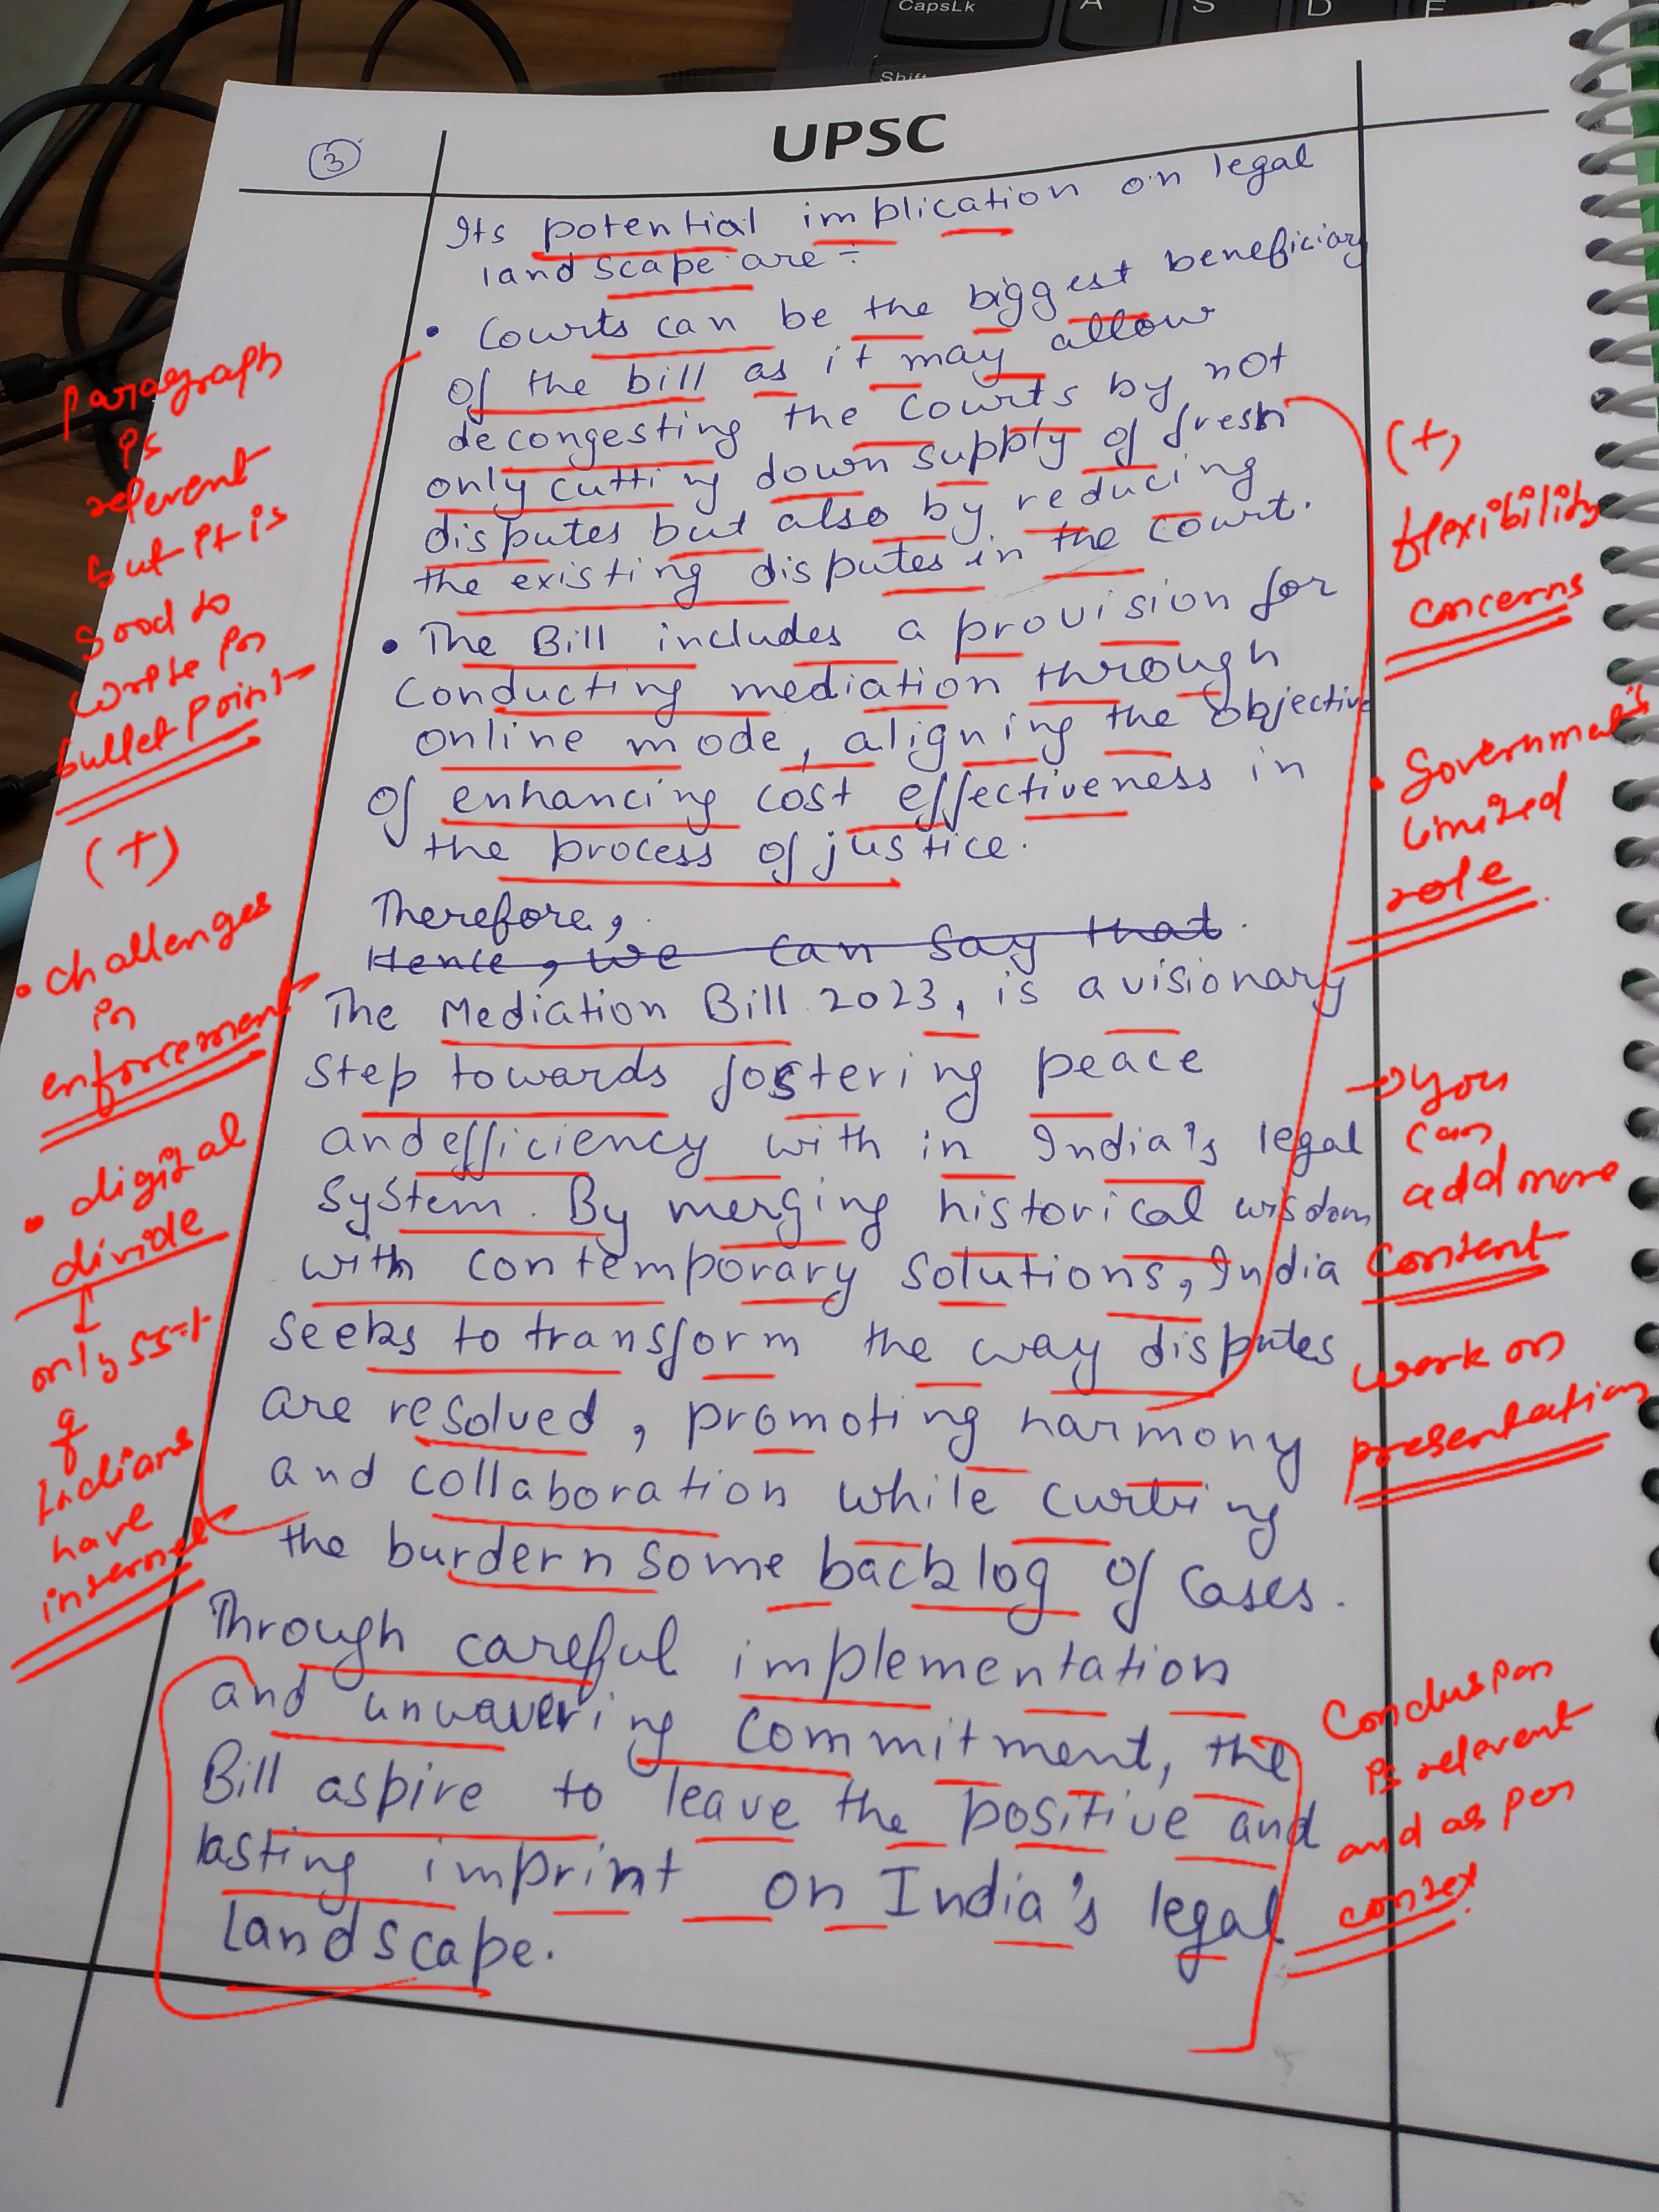 CapsLk
A
S
D
F
Shift
UPSC
3
Its potential implication on legal
landscape are ÷
• Courts can be the biggest beneficiary
of the bill as it may allow
decongesting the courts by not
only cutting down supply of fresh
disputes but also by reducing
the existing disputes in the court.
• The Bill includes a provision for
conducting mediation through
online mode, aligning the objective
of enhancing cost effectiveness in
the process of justice.
Therefore,
Hence, we can say that.
The Mediation Bill 2023, is a visionary
step towards fostering peace
and efficiency with in India's legal
system. By merging historical wisdom
with contemporary solutions, India
seeks to transform the way disputes
are resolved, promoting harmony
and collaboration while curbing
the burdernsome backlog of cases.
Through careful implementation
and unwavering commitment, the
Bill aspire to leave the positive and
lasting imprint on India's legal
landscape.
paragraph
is
relevent
but it is
good to
write in
bullet point
(+)
• challenges
in
enforcement
• digital
divide
↓
only 55%
of
Indians
have
internet
(+)
flexibility
concerns
• Government's
limited
role
→ you
can
add more
content
work on
presentation
Conclusion
is relevent
and as per
contex